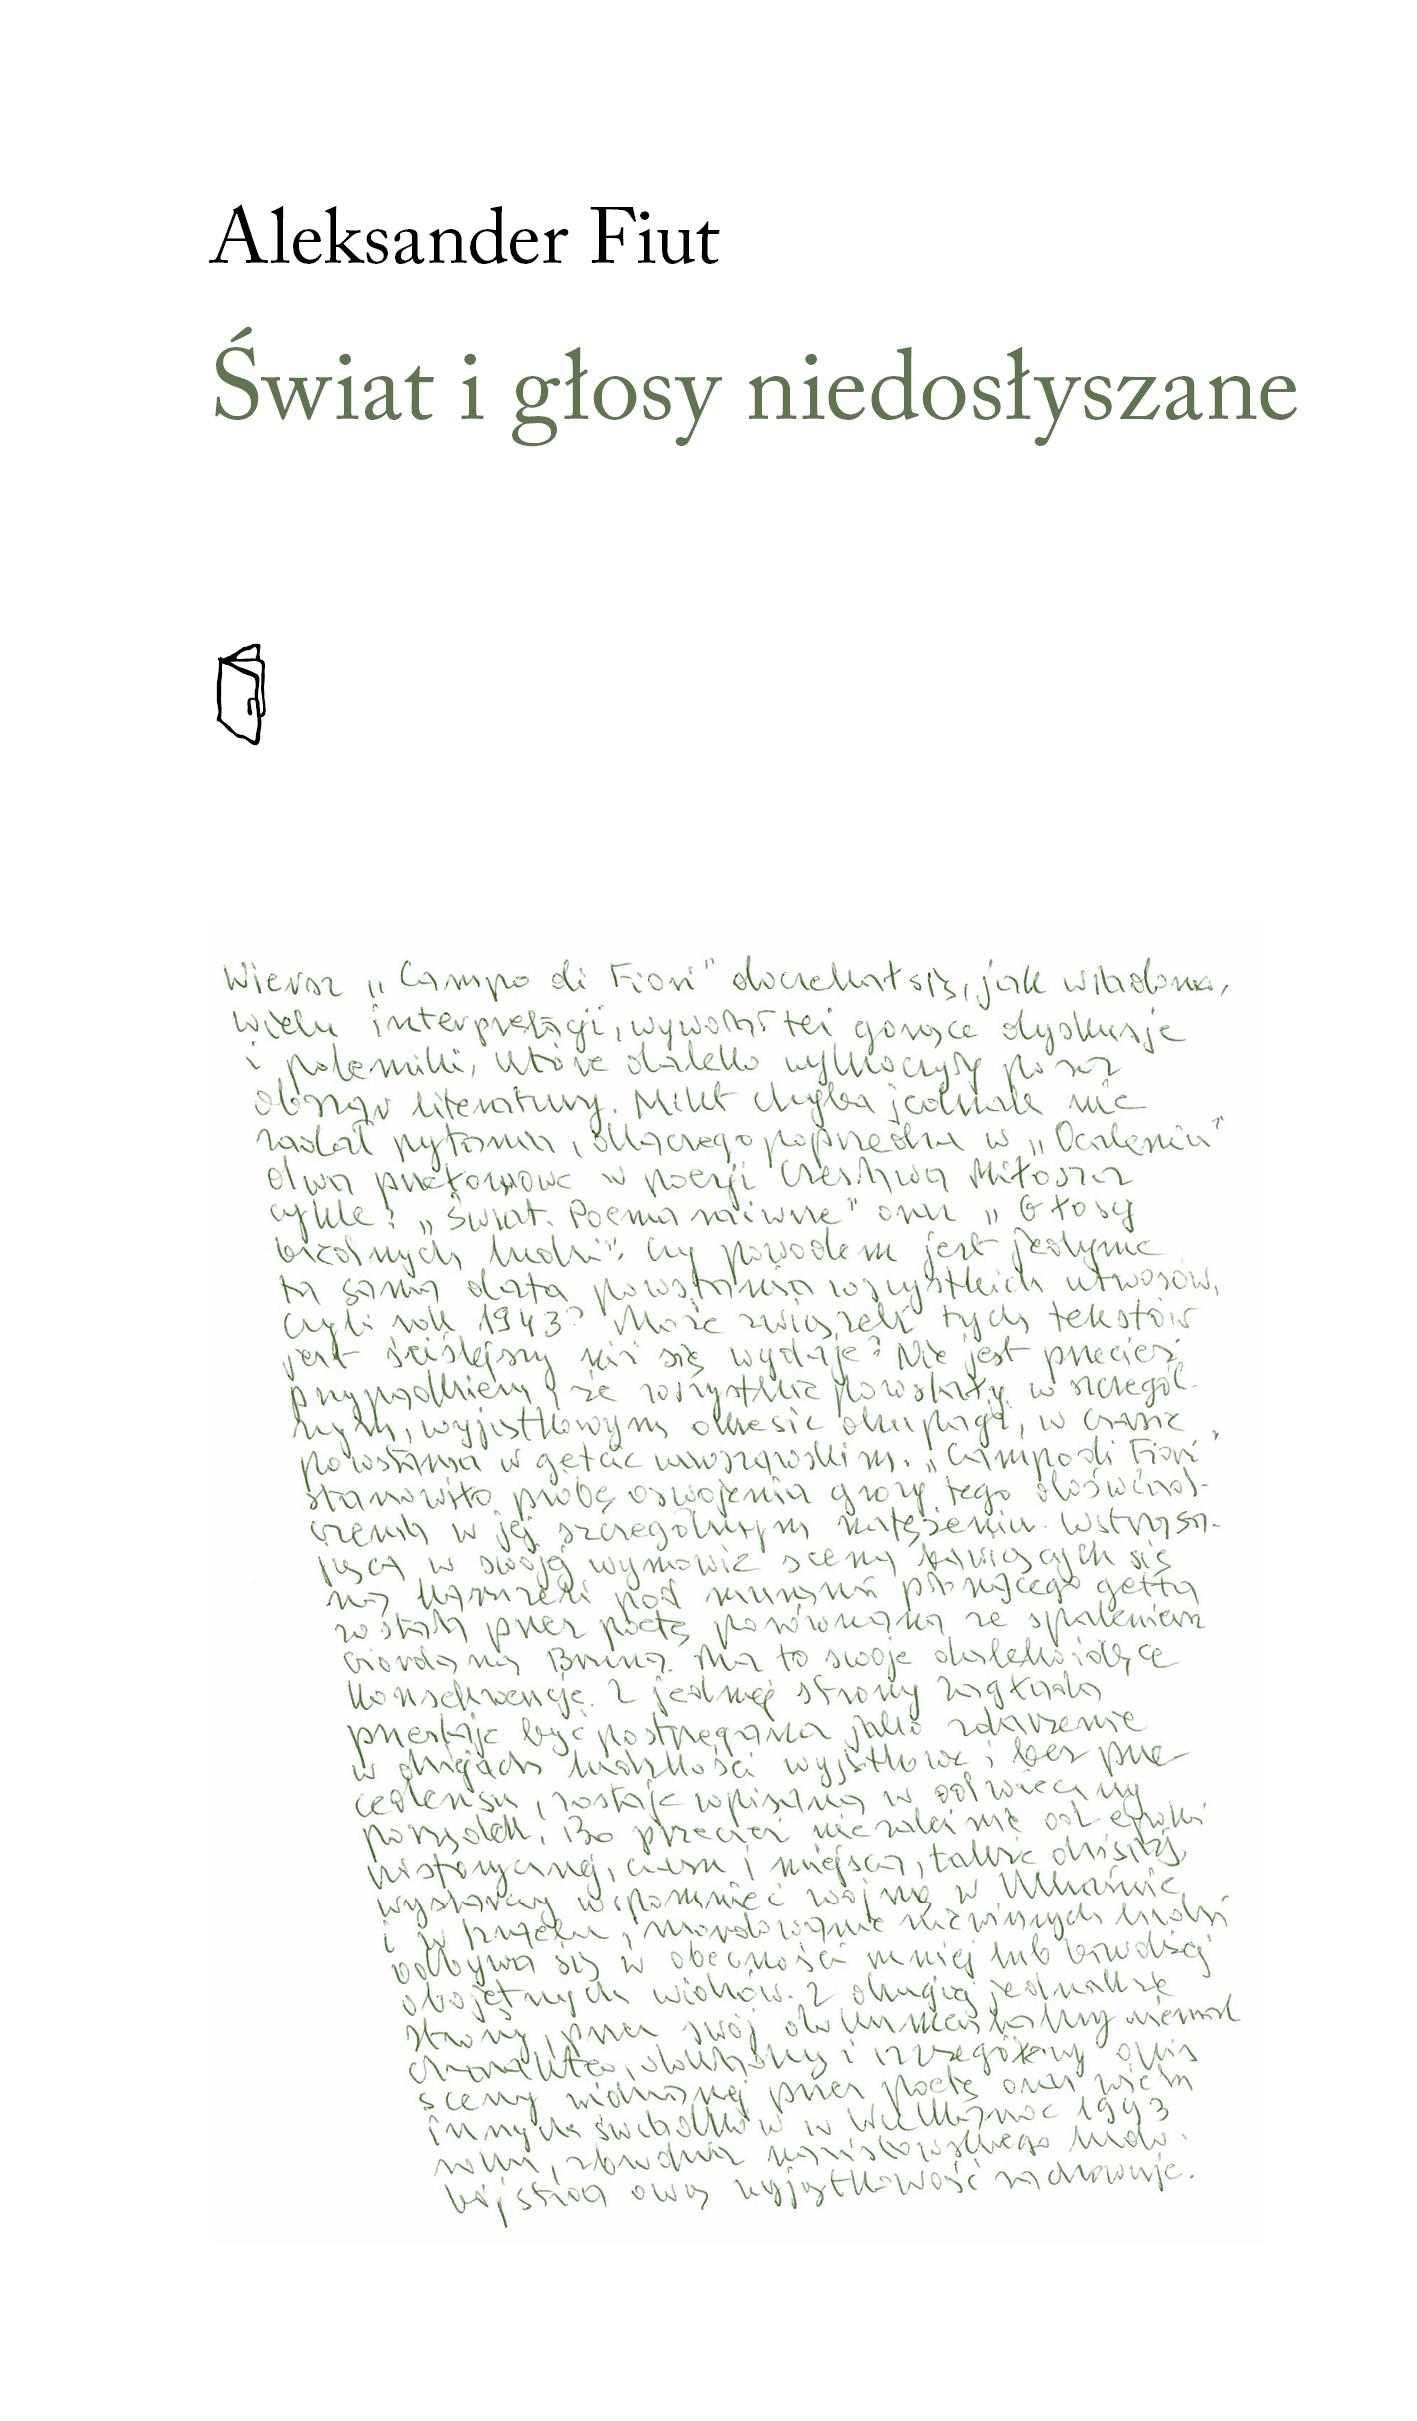 Aleksander Fiut
Świat i głosy niedosłyszane
Wiersz „Campo di Fiori” doczekał się, jak wiadomo,
wielu interpretacji, wywołał też gorące dyskusje
i polemiki, które daleko wykroczyły poza
obszar literatury. Nikt chyba jednak nie
zadał pytania, dlaczego poprzedza w „Ocaleniu”
dwa przełomowe w poezji Czesława Miłosza
cykle: „Świat. Poema naiwne” oraz „Głosy
biednych ludzi”. Czy powodem jest jedynie
ta sama data powstania wszystkich utworów,
czyli rok 1943? Może związek tych tekstów
jest ściślejszy niż się wydaje? Nie jest przecież
przypadkiem, że wszystkie powstały w szczegól-
nym, wyjątkowym okresie okupacji, w czasie
powstania w getcie warszawskim. „Campo di Fiori”
stanowiło próbę oswojenia grozy tego doświad-
czenia w jej szczególnym natężeniu. Wstrząsa-
jąca w swojej wymowie scena bawiących się
na karuzeli pod murami płonącego getta
została przez poetę porównana ze spaleniem
Giordana Bruna. Ma to swoje daleko idące
konsekwencje. Z jednej strony zagłada
przestaje być postrzegana jako zdarzenie
w dziejach ludzkości wyjątkowe i bez pre-
cedensu, zostaje wpisana w odwieczny
porządek. Bo przecież niezależnie od epoki
historycznej, czasu i miejsca, także dzisiaj,
wystarczy wspomnieć wojnę w Ukrainie
i w Izraelu, mordowanie niewinnych ludzi
odbywa się w obecności mniej lub bardziej
obojętnych widzów. Z drugiej jednakże
strony, przez swój dokumentalny niemal
charakter, dokładny i szczegółowy opis
sceny widzianej przez poetę oraz wielu
innych świadków w Wielkanoc 1943
roku, zbrodnia nazistowskiego ludo-
bójstwa ową wyjątkowość zachowuje.